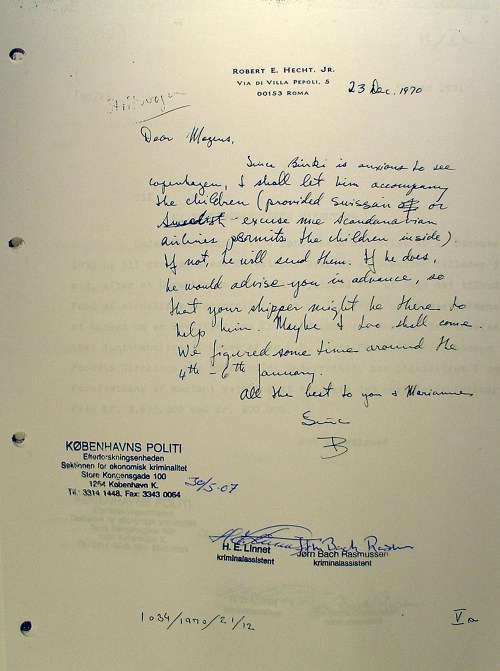 ROBERT E. HECHT, JR.
VIA DI VILLA PEPOLI, 5
00153 ROMA
23 Dec. 1970
Dear Mogens,
Since Binki is anxious to see
Copenhagen, I shall let him accompany
the children (provided Swissair or
Swedish - excuse me Scandanavian
airlines permits the children inside).
If not, he will send them. If he does,
he would advise you in advance, so
that your shipper might be there to
help him. Maybe I too shall come.
We figured some time around the
4th - 6th January.
All the best to you & Marianne
B
KØBENHAVNS POLITI
Efterforskningsenheden
Sektionen for økonomisk kriminalitet
Store Kongensgade 100
1264 København K.
Tlf.: 3314 1448, Fax: 3343 0064
30/5-07
H. E. Linnet
kriminalassistent
Jørn Bach Rasmussen
Jørn Bach Rasmussen
kriminalassistent
1034/1970/21/12